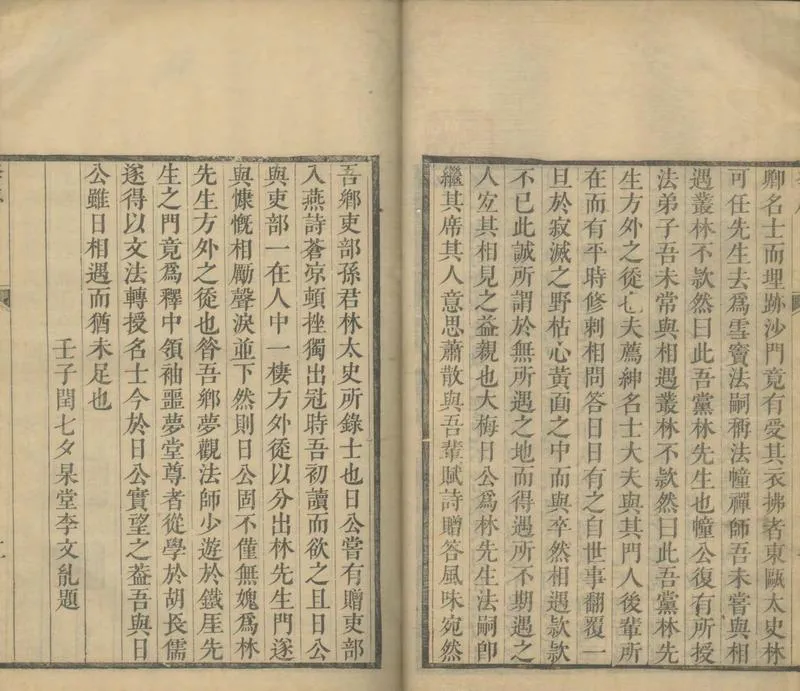 卿名士而埋跡沙門竟有受其衣拂者東甌太史林
可任先生去爲雪竇法嗣稱法幢禪師吾未嘗與相
遇叢林不欵然曰此吾黨林先生也幢公復有所授
法弟子吾未常與相遇叢林不欵然曰此吾黨林先
生方外之徒也夫薦紳名士大夫與其門人後輩所
在而有平時修刺相問答日日有之自世事翻覆一
旦於寂滅之野枯心黃面之中而與卒然相遇欵欵
不已此誠所謂於無所遇之地而得遇所不期遇之
人宐其相見之益親也大梅日公爲林先生法嗣卽
繼其席其人意思蕭散與吾輩賦詩贈答風味宛然
吾鄉吏部孫君林太史所錄士也日公嘗有贈吏部
入燕詩蒼凉頓挫獨出冠時吾初讀而欲之且日公
與吏部一在人中一棲方外徒以分出林先生門遂
與慷慨相勵聲淚並下然則日公固不僅無媿爲林
先生方外之徒也昝吾鄉夢觀法師少遊於鐵厓先
生之門竟爲釋中領袖噩夢堂尊者從學於胡長儒
遂得以文法轉授名士今於日公實望之葢吾與日
公雖日相遇而猶未足也
壬子閏七夕杲堂李文胤題